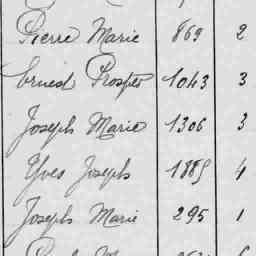 Pierre Marie 869 2
Ernest Prosper 1043 3
Joseph Marie 1306 3
Yves Joseph 1885 4
Joseph Marie 295 1